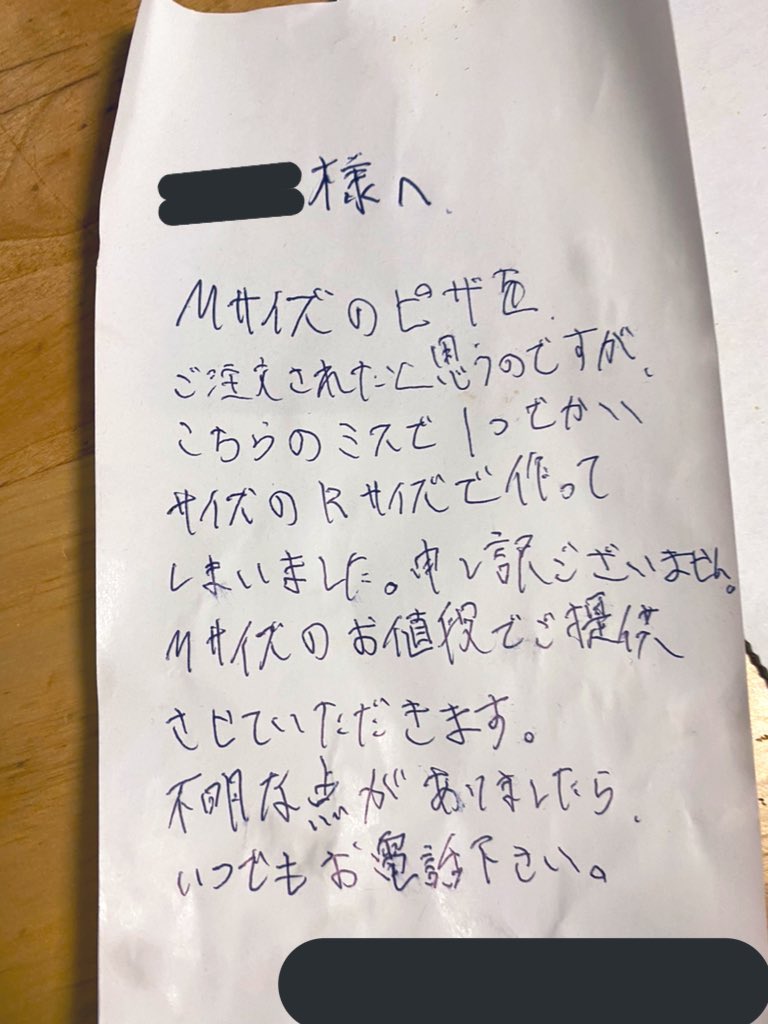 様へ、
Mサイズのピザを、
ご注文されたと思うのですが、
こちらのミスで1つでかい
サイズのRサイズで作って
しまいました。申し訳ございません。
Mサイズのお値段でご提供
させていただきます。
不明な点がありましたら、
いつでもお電話下さい。